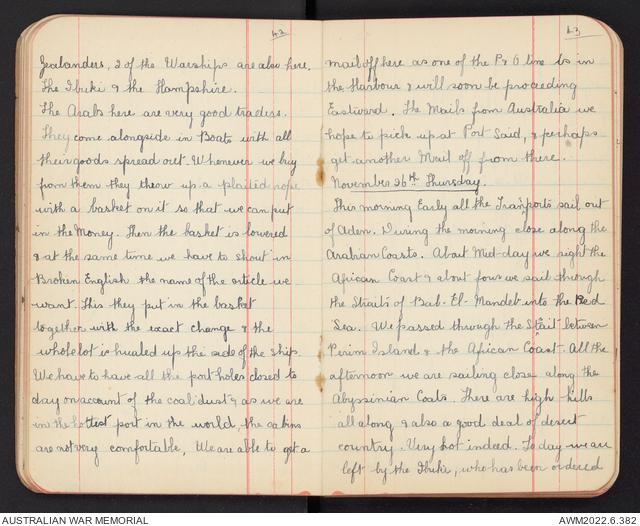 42
Zealanders, 2 of the Warships are also here.
The Ibuki & the Hampshire.
The Arabs here are very good traders.
They come alongside in Boats with all
their goods spread out. Whenever we buy
from them they throw up a plaited rope
with a basket on it so that we can put
in the Money. Then the basket is lowered
& at the same time we have to shout in
Broken English the name of the article we
want. This they put in the basket
together with the exact change & the
whole lot is hualed up the side of the ship.
We have to have all the port holes closed to
day on account of the coal dust & as we are
in the hottest port in the world, the cabins
are not very comfortable, We are able to get a
43
mail off here as one of the P & O line is in
the Harbour & will soon be proceeding
Eastward. The Mails from Australia we
hope to pick up at Port Said, & perhaps
get another Mail off from there.
November 26th Thursday.
This morning Early all the Transports sail out
of Aden. During the morning close along the
Arabian Coasts. About Mid-day we sight the
African Coast & about four we sail through
the Straits of Bab-El-Mandeb into the Red
Sea. We passed through the Stait between
Perim Island & the African Coast. All the
afternoon we are sailing close along the
Abyssinian Coats. There are high hills
all along & also a good deal of desert
country. Very hot indeed. To day we are
left by the Ibuki, who has been ordered
AUSTRALIAN WAR MEMORIAL
AWM2022.6.382